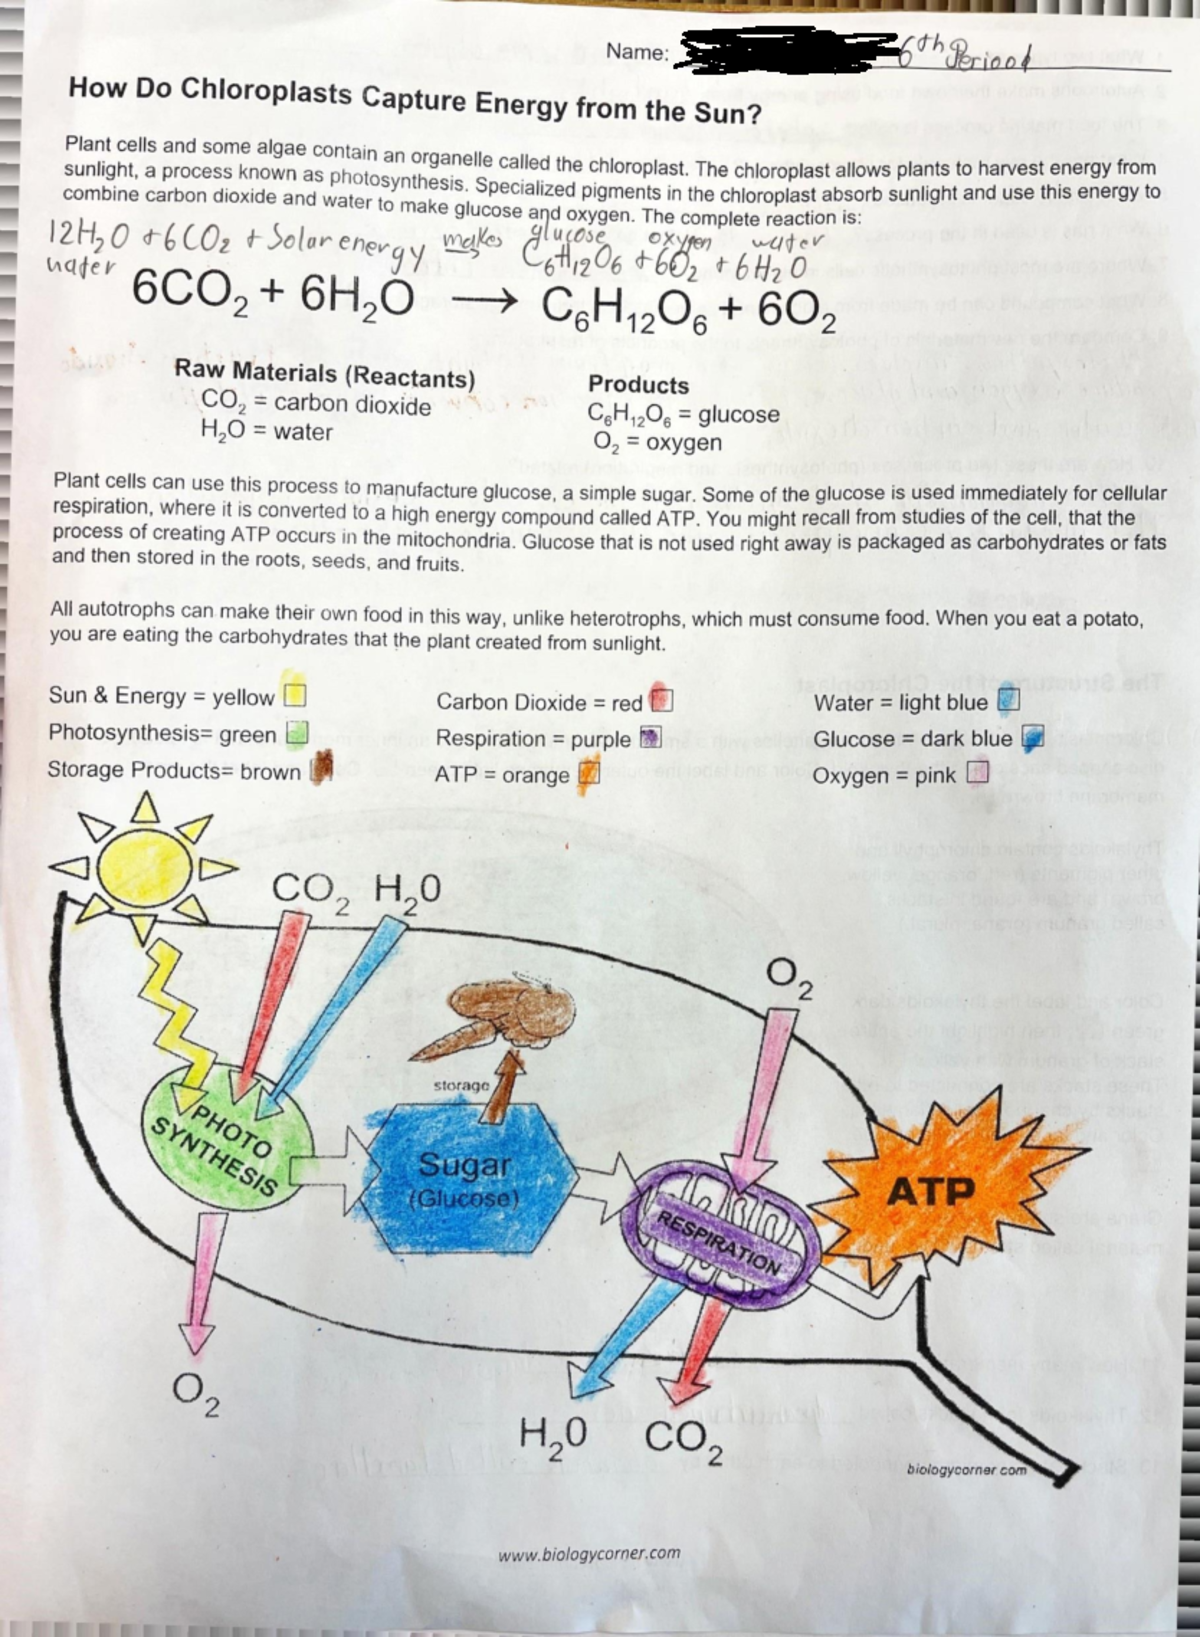 Name: 6th Period
How Do Chloroplasts Capture Energy from the Sun?
Plant cells and some algae contain an organelle called the chloroplast. The chloroplast allows plants to harvest energy from
sunlight, a process known as photosynthesis. Specialized pigments in the chloroplast absorb sunlight and use this energy to
combine carbon dioxide and water to make glucose and oxygen. The complete reaction is:
glucose oxygen water
12H₂O + 6CO₂ + Solar energy makes C₆H₁₂O₆ + 6O₂ + 6H₂O
water
6CO₂ + 6H₂O → C₆H₁₂O₆ + 6O₂
Raw Materials (Reactants)
CO₂ = carbon dioxide
H₂O = water
Products
C₆H₁₂O₆ = glucose
O₂ = oxygen
Plant cells can use this process to manufacture glucose, a simple sugar. Some of the glucose is used immediately for cellular
respiration, where it is converted to a high energy compound called ATP. You might recall from studies of the cell, that the
process of creating ATP occurs in the mitochondria. Glucose that is not used right away is packaged as carbohydrates or fats
and then stored in the roots, seeds, and fruits.
All autotrophs can make their own food in this way, unlike heterotrophs, which must consume food. When you eat a potato,
you are eating the carbohydrates that the plant created from sunlight.
Sun & Energy = yellow Carbon Dioxide = red Water = light blue
Photosynthesis= green Respiration = purple Glucose = dark blue
Storage Products= brown ATP = orange Oxygen = pink
CO₂ H₂0
O₂
storage
PHOTO
SYNTHESIS
Sugar
(Glucose)
RESPIRATION
ATP
O₂
H₂0 CO₂
biologycorner.com
www.biologycorner.com